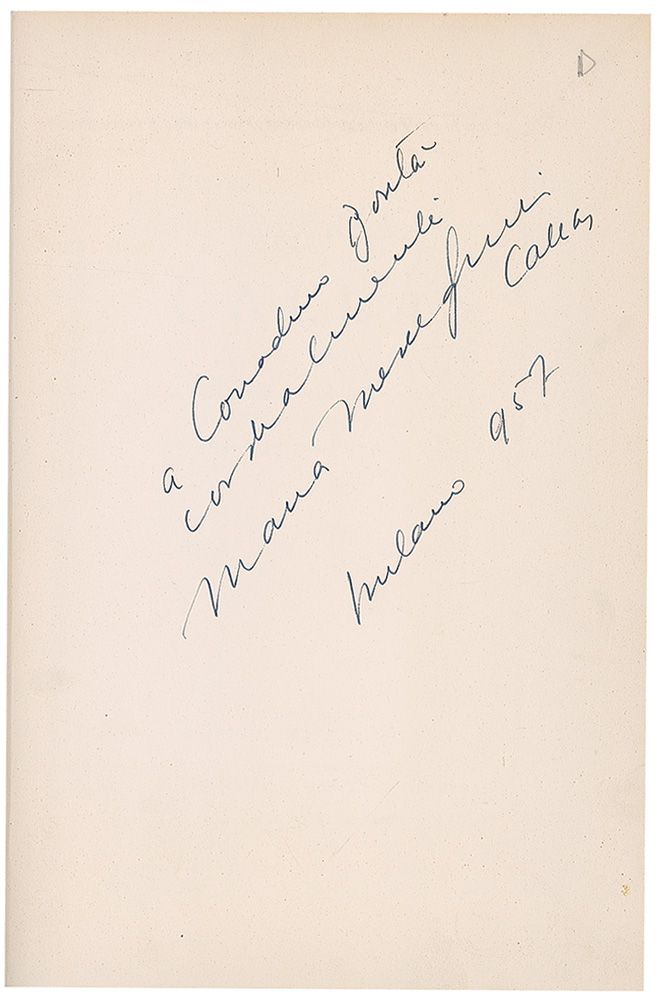 D
a Corradino Bontà
cordialmente
Maria Meneghini
Callas
Milano 957